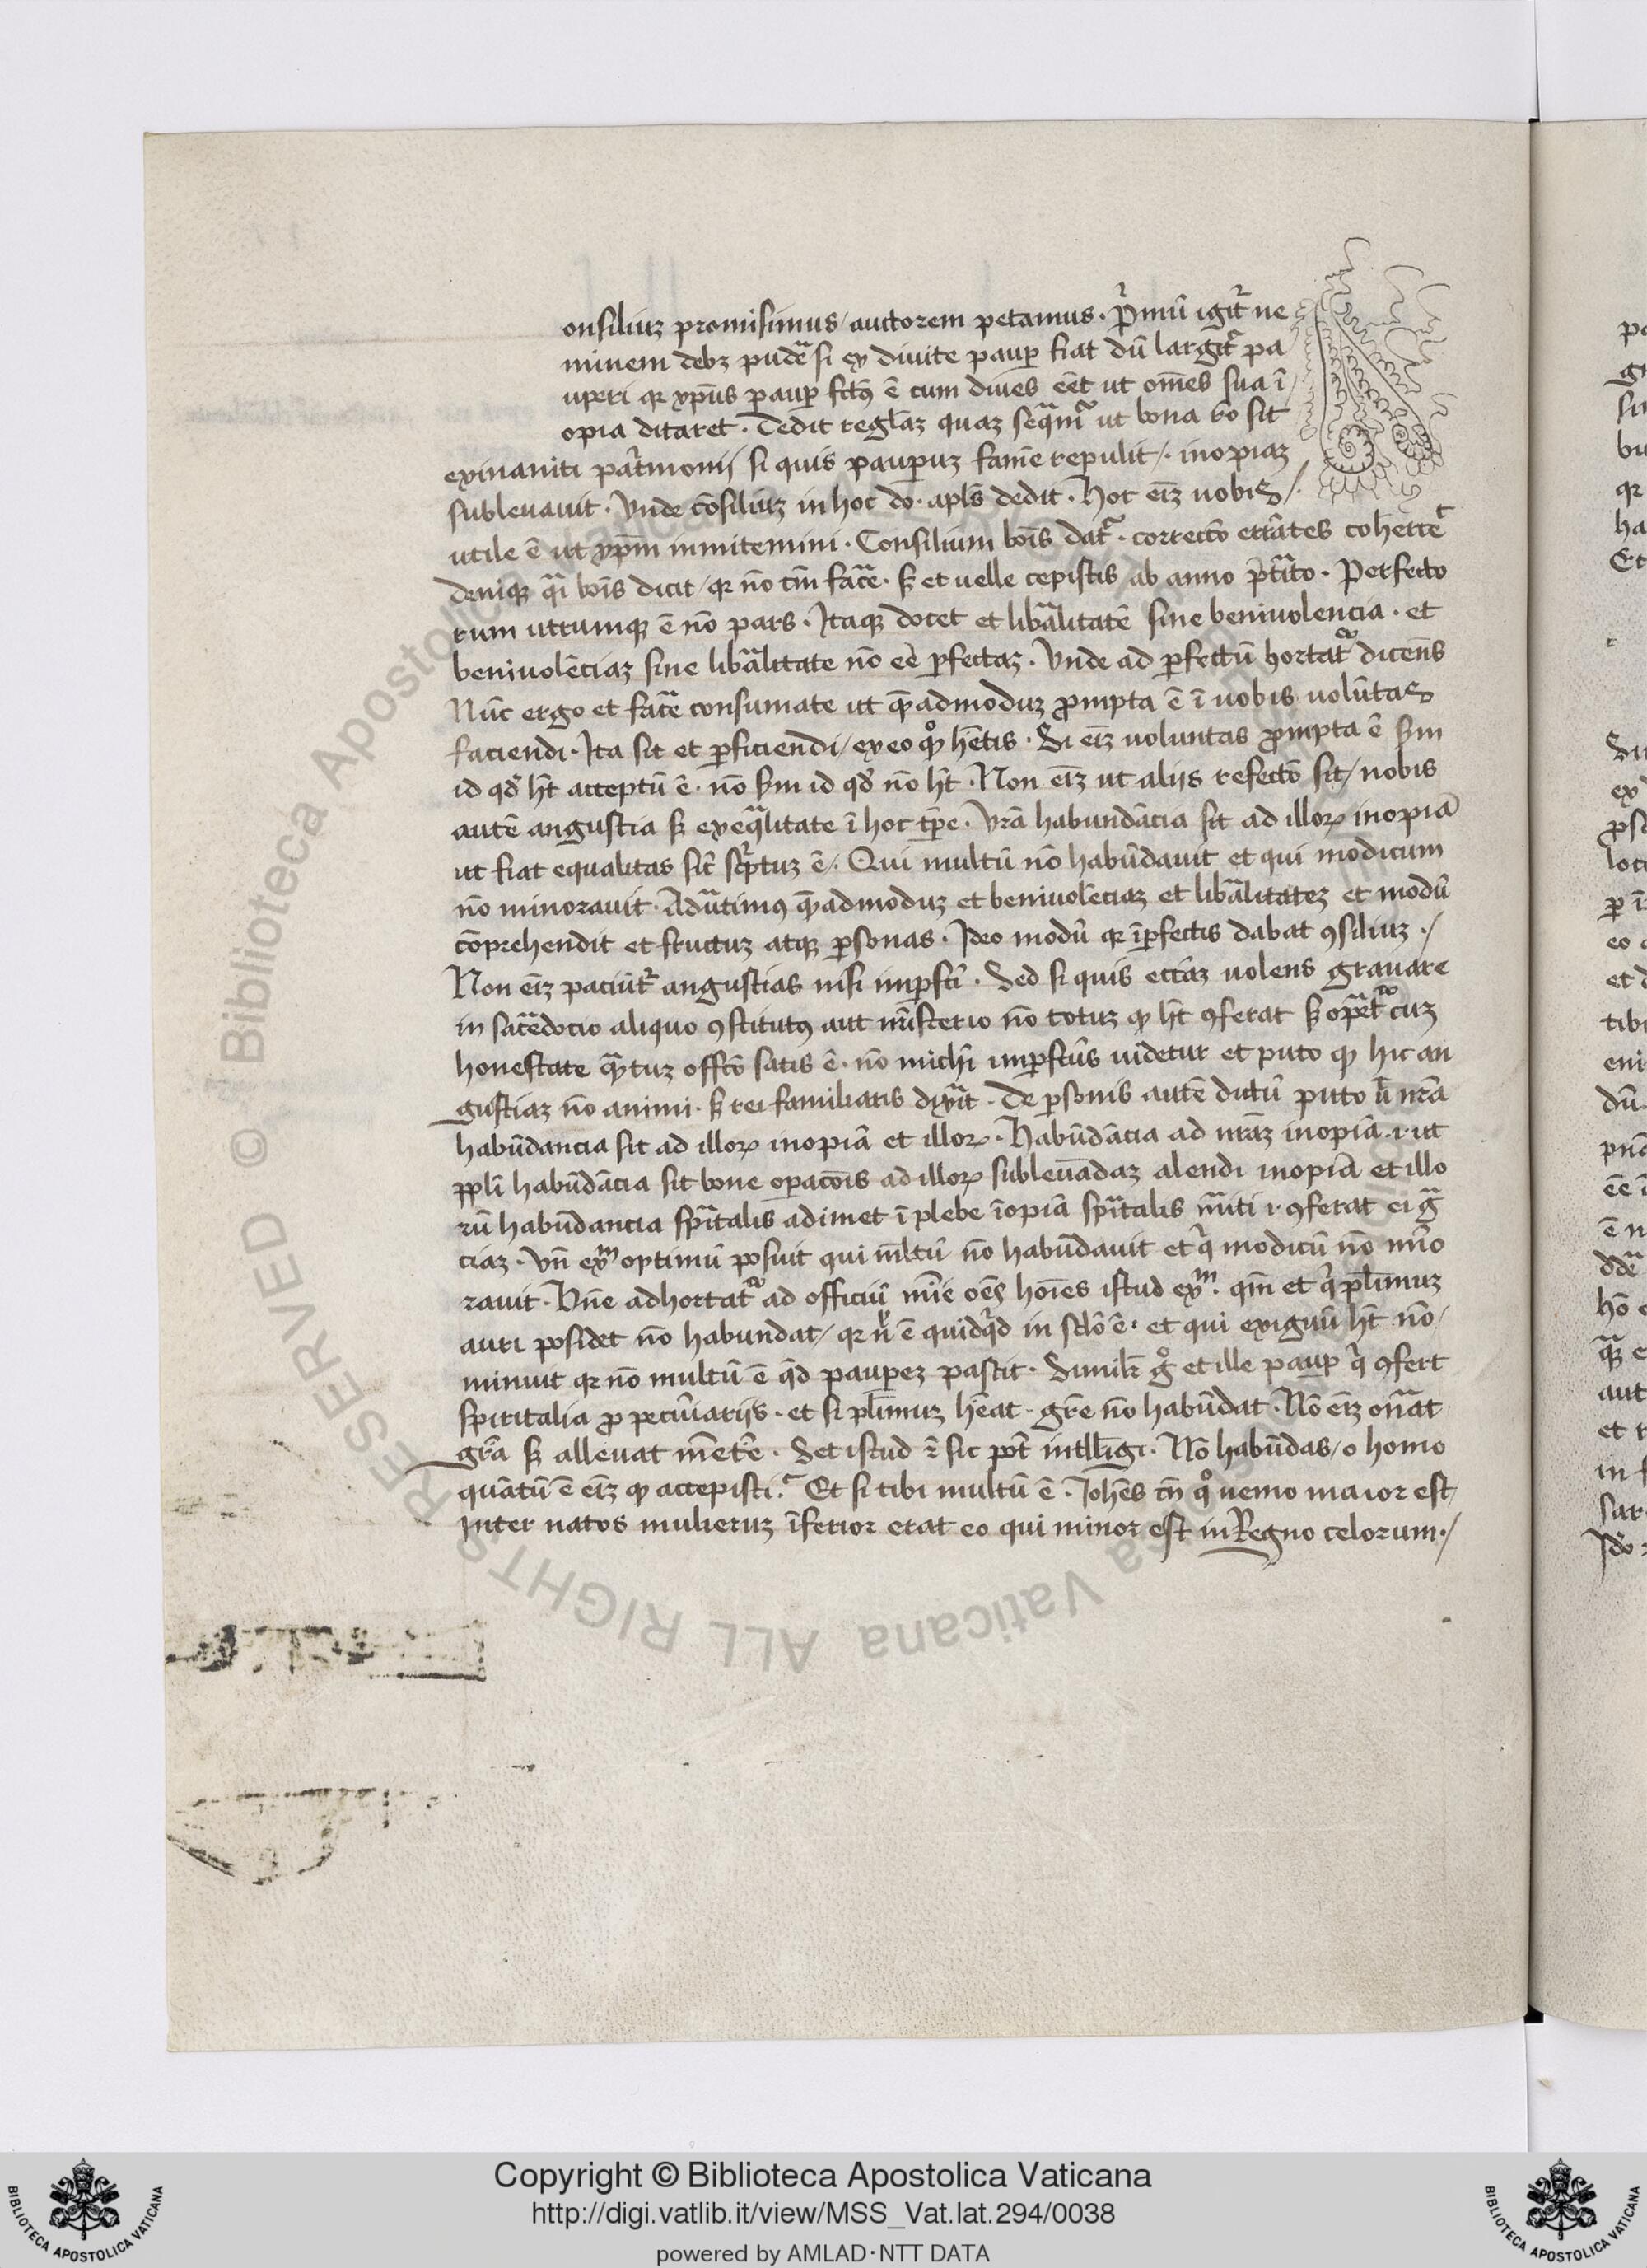 onsiliuz promisimus / auctorem petamus . p̾mū igit᷑ ne
minem debꝫ pudē si ex diuite paup̱ fiat dū largit᷑ pa
uperi qr xp̄us paup̱ fctꝰ ē cum diues eēt ut om̄es sua ī
opia ditaret . Dedit reglaz quaz seq̄m᷑ ut bona rō sit
exinaniti pat̾monij si quis paup̱uz famē repulit / . inopiaz
subleuauit . Vnde cōsiliuz in hoc do . apl̄s dedit . Hoc eīz nobis / .
utile ē ut xp̄m inmitemini . Consilium bōis dat᷑ . correctō errātes cohercet
deniqꝫ q̄i bōis dicit / qr nō tm̄ fac̄e . sꝫ et uelle cepistis ab anno p̄tīto . Perfecto
rum utrumqꝫ ē nō pars . Itaqꝫ docet et lib̄alitatē sine beniuolencia . et
beniuolēciaz sine lib̄alitate nō eē ꝑfectaz . Vnde ad ꝑfectū hortat᷑ dicens
Nūc ergo et fac̄e consumate ut quēadmoduz ꝓmpta ē ī uobis uolūtas
faciendi . Ita sit et ꝑficiendi / ex eo qꝫ hētis . Si eīz uoluntas ꝓmpta ē sm̄
id qd̾ ht̄ acceptū ē . nō sm̄ id qd̾ nō ht̄ . Non eīz ut aliis refectō sit / nobis
autē angustia sꝫ ex eq̄litate ī hoc tp̄e . Vrā habundācia sit ad illoꝝ inopiā
ut fiat equalitas sic̄ sc̾ptuz ē / . Qui multū nō habūdauit et qui modicum
nō minorauit . Aduētimꝰ quēadmoduz et beniuolēciaz et lib̄alitatez et modū
cōprehendit et fructuz atqꝫ ꝑsonas . Ideo modū qr īꝑfectis dabat ꝯsiliuz . /
Non eīz paciūt᷑ angustias nisi imꝑfcī . Sed si quis eccīaz nolens grauare
in sac̄docio aliquo ꝯstitutꝰ aut mīsterio nō totuz qꝫ ht̄ ꝯferat sꝫ oꝑet᷑ cuz
honestate quātuz offcō satis ē . nō michī imꝑfctꝰ uidetur et puto qꝫ hic an
gustiaz nō animi . sꝫ rei familiaris dixīt . De ꝑsonis autē dictū puto ut̄ nrā
habūdancia sit ad illoꝝ inopiā et illoꝝ . Habūdācia ad nrāz inopiā . i . ut
ppl̄i habūdācia sit bone oꝑacōis ad illoꝝ subleuādaz alendi inopiā et illo
rū habūdancia sp̄italis adimet ī plebe īopiā sp̄italis m̄iti i . ꝯferat ei grā
ciaz . Vn̄ exm̄ optimū posuit qui ml̄tū nō habūdauit et q̾ modicū nō mīo
rauit . Bn̄e adhortat᷑ ad officiū mīe oēs hoīes istud exm̄ . qm̄ et q̾ pl̄imuz
auri posidet nō habundat / qr n̾l ē quidq̾d in sclō ē . et qui exiguū ht̄ nō /
minuit qr nō multū ē q̾d pauꝑez pascit . Similr̄ gͦ et ille paup̱ q̾ ꝯfert
spiritalia ꝓ pecūiariis . et si pl̄imuz hēat . grē nō habūdat . Nō eīz onāt
grā sꝫ alleuat mēte . Set istud ⁊ sic pōt intll̄igi . Nō habūdas / o homo
quātū ē eīz qꝫ accepisti ? Et si tibi multū ē . Iohēs tn̄ qͦ nemo maior est /
Inter natos mulieruz īferior erat eo qui minor est in Regno celorum . /
Copyright © Biblioteca Apostolica Vaticana
http://digi.vatlib.it/view/MSS_Vat.lat.294/0038
powered by AMLAD·NTT DATA